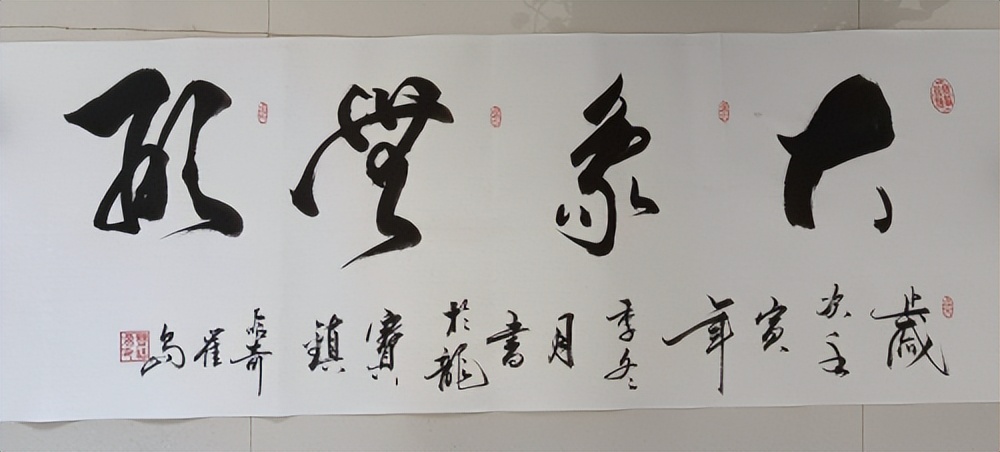 大象無形
歲次壬寅年季冬月書於龍寶鎮
崔島